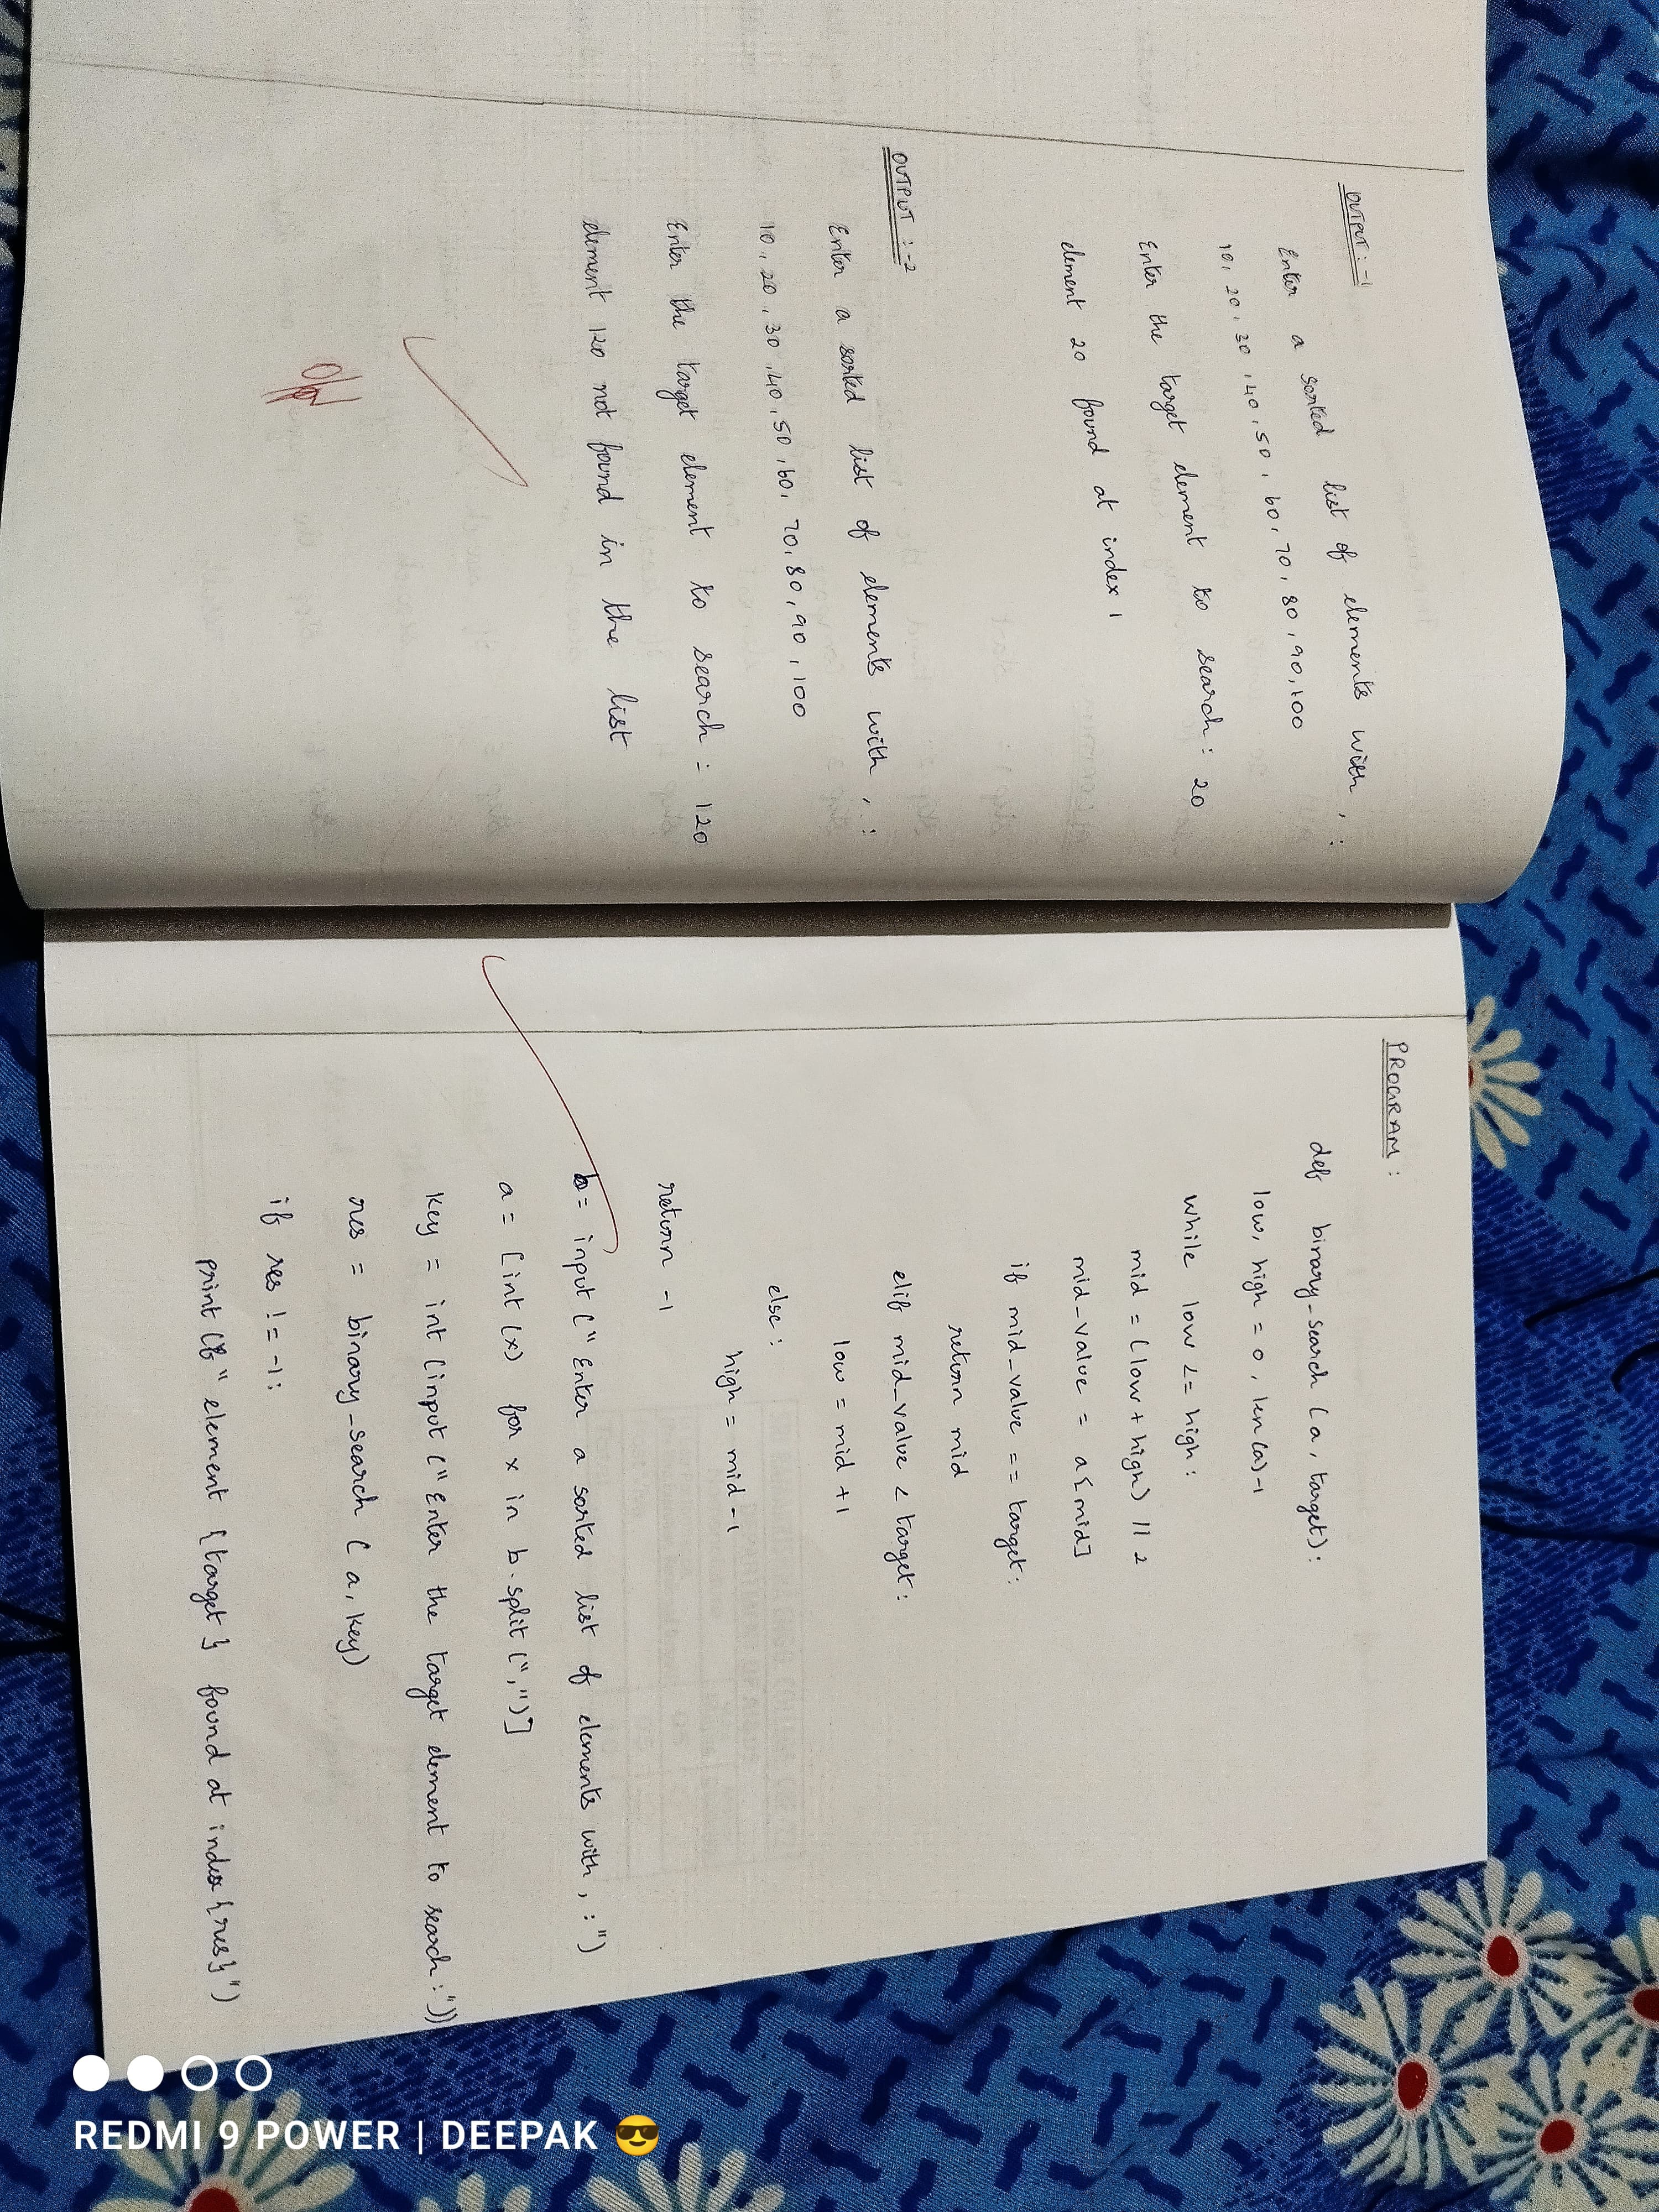 OUTPUT :-1
Enter a sorted list of elements with , :
10, 20, 30, 40, 50, 60, 70, 80, 90, 100
Enter the target element to search : 20
element 20 found at index 1
OUTPUT :-2
Enter a sorted list of elements with , :
10, 20, 30, 40, 50, 60, 70, 80, 90, 100
Enter the target element to search : 120
element 120 not found in the list
PROGRAM :
def binary_search (a, target):
low, high = 0, len(a)-1
while low <= high:
mid = (low + high) // 2
mid_value = a[mid]
if mid_value == target:
return mid
elif mid_value < target:
low = mid +1
else:
high = mid-1
return -1
b= input (" Enter a sorted list of elements with , :")
a = [int (x) for x in b.split (",")]
key = int (input (" Enter the target element to search :"))
res = binary_search (a, key)
if res != -1:
print (f" element {target} found at index {res}")
REDMI 9 POWER | DEEPAK 😎